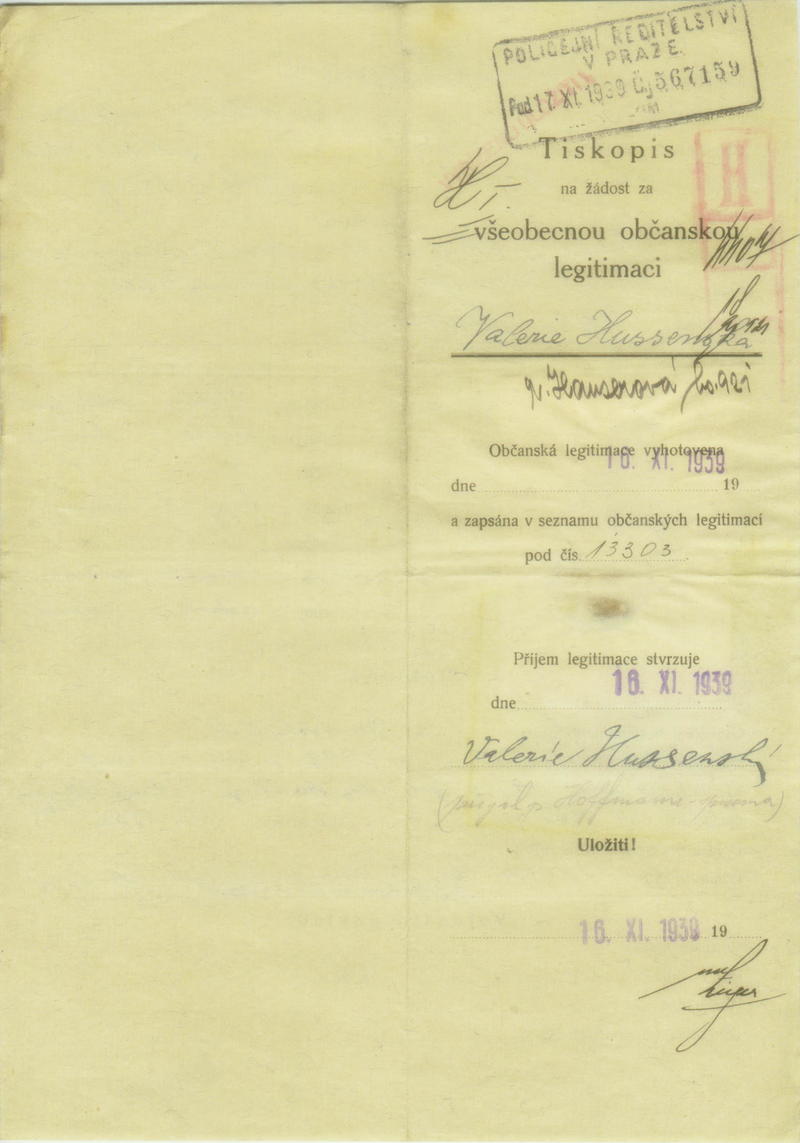 POLICEJNÍ ŘEDITELSTVÍ
V PRAZE
Pod 17 XI. 1939 Čj 567159
Tiskopis
na žádost za
H I.
všeobecnou občanskou
legitimaci
Valerie Hussenská
Hauserová
Občanská legitimace vyhotovena
16. XI. 1939
dne 19
a zapsána v seznamu občanských legitimací
pod čís. 13303
Příjem legitimace stvrzuje
16. XI. 1939
dne
Valerie Hussenská
Hoffmann
Uložiti!
16. XI. 1939 19